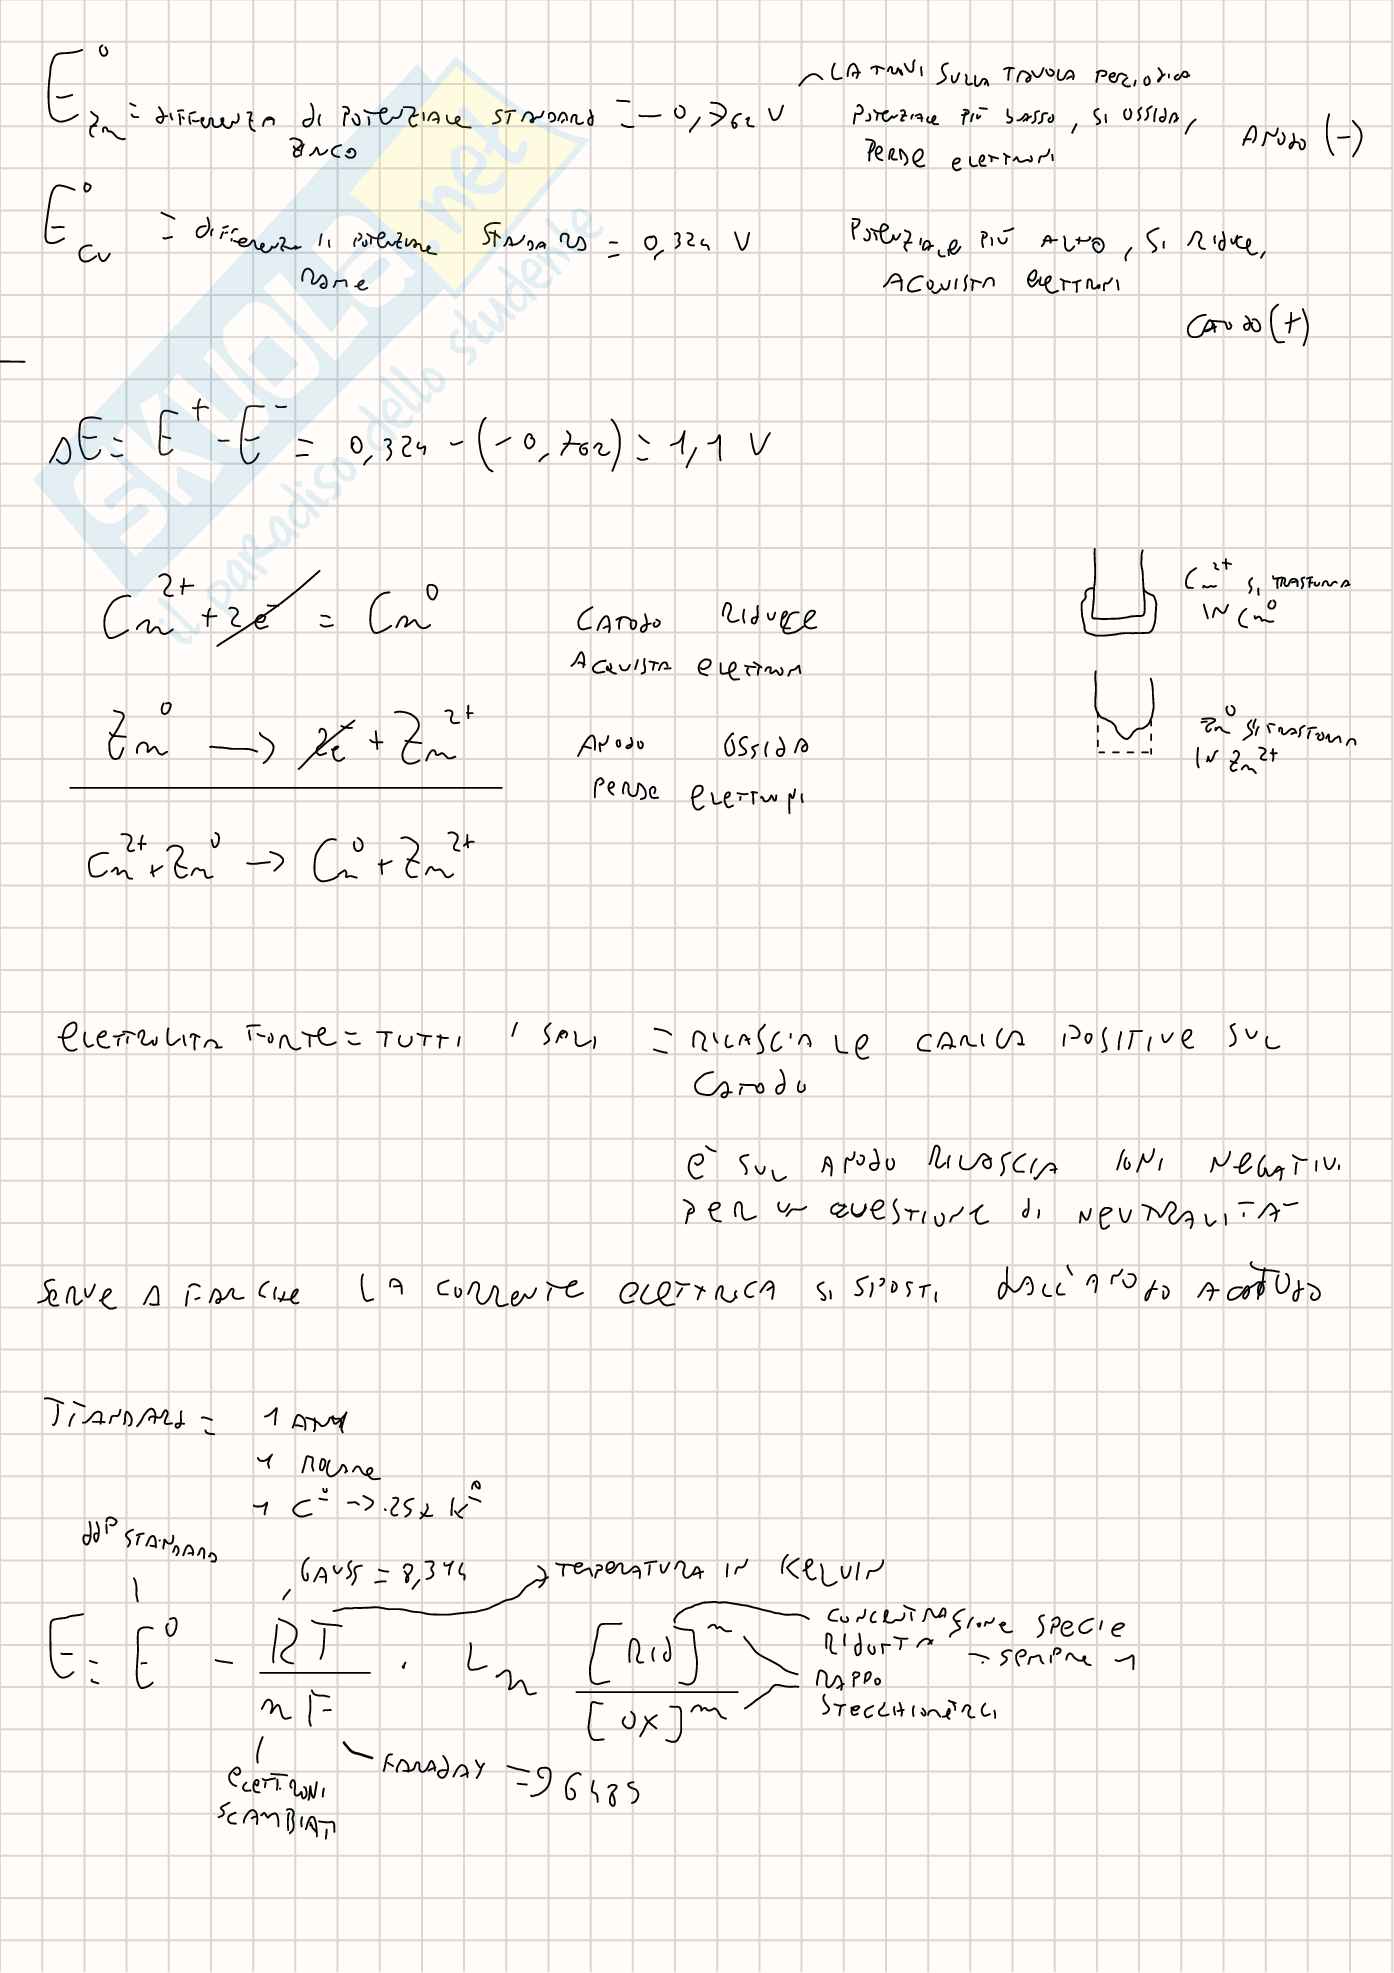 E⁰Zn = differenza di potenziale standard = -0,762 V
zinco
la trovi sulla tavola periodica
potenziale più basso, si ossida,
perde elettroni
anodo (-)
E⁰Cu = differenza di potenziale standard = 0,324 V
rame
potenziale più alto, si riduce,
acquista elettroni
catodo (+)
ΔE = E⁺ - E⁻ = 0,324 - (-0,762) = 1,1 V
Cu²⁺ + 2e⁻ = Cu⁰
catodo riduce
acquista elettroni
Cu²⁺ si trasforma
in Cu⁰
Zn⁰ → 2e⁻ + Zn²⁺
anodo ossida
perde elettroni
Zn⁰ si trasforma
in Zn²⁺
Cu²⁺ + Zn⁰ → Cu⁰ + Zn²⁺
elettrolita forte = tutti i sali = rilascia le carica positive sul
catodo
e sul anodo rilascia ioni negativi
per un questione di neutralità
serve a far che la corrente elettrica si sposti dall'anodo a catodo
standard = 1 atm
1 molare
1 C° →
ddp standard
Gauss = 8,314
temperatura in Kelvin
E = E⁰ - RT/nF · Ln [Rid]ⁿ/[Ox]ᵐ
concentrazione specie
ridotta → sempre 1
stecchiometrci
elettroni
scambiati
Faraday = 96485
SKUOLA.net
il paradiso dello studente